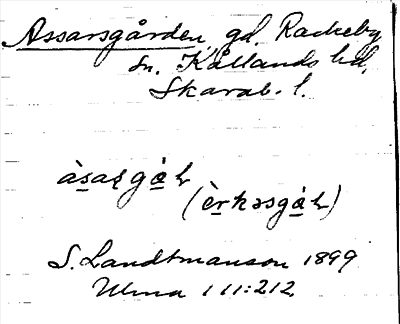 Assarsgården, gd, Rackeby
sn. Kållands hd,
Skarab. l.
àsaʂgɑ̀ɽ
(èrkəsgɑ̀ɽ)
S. Landtmanson 1899
Ulma 111:212